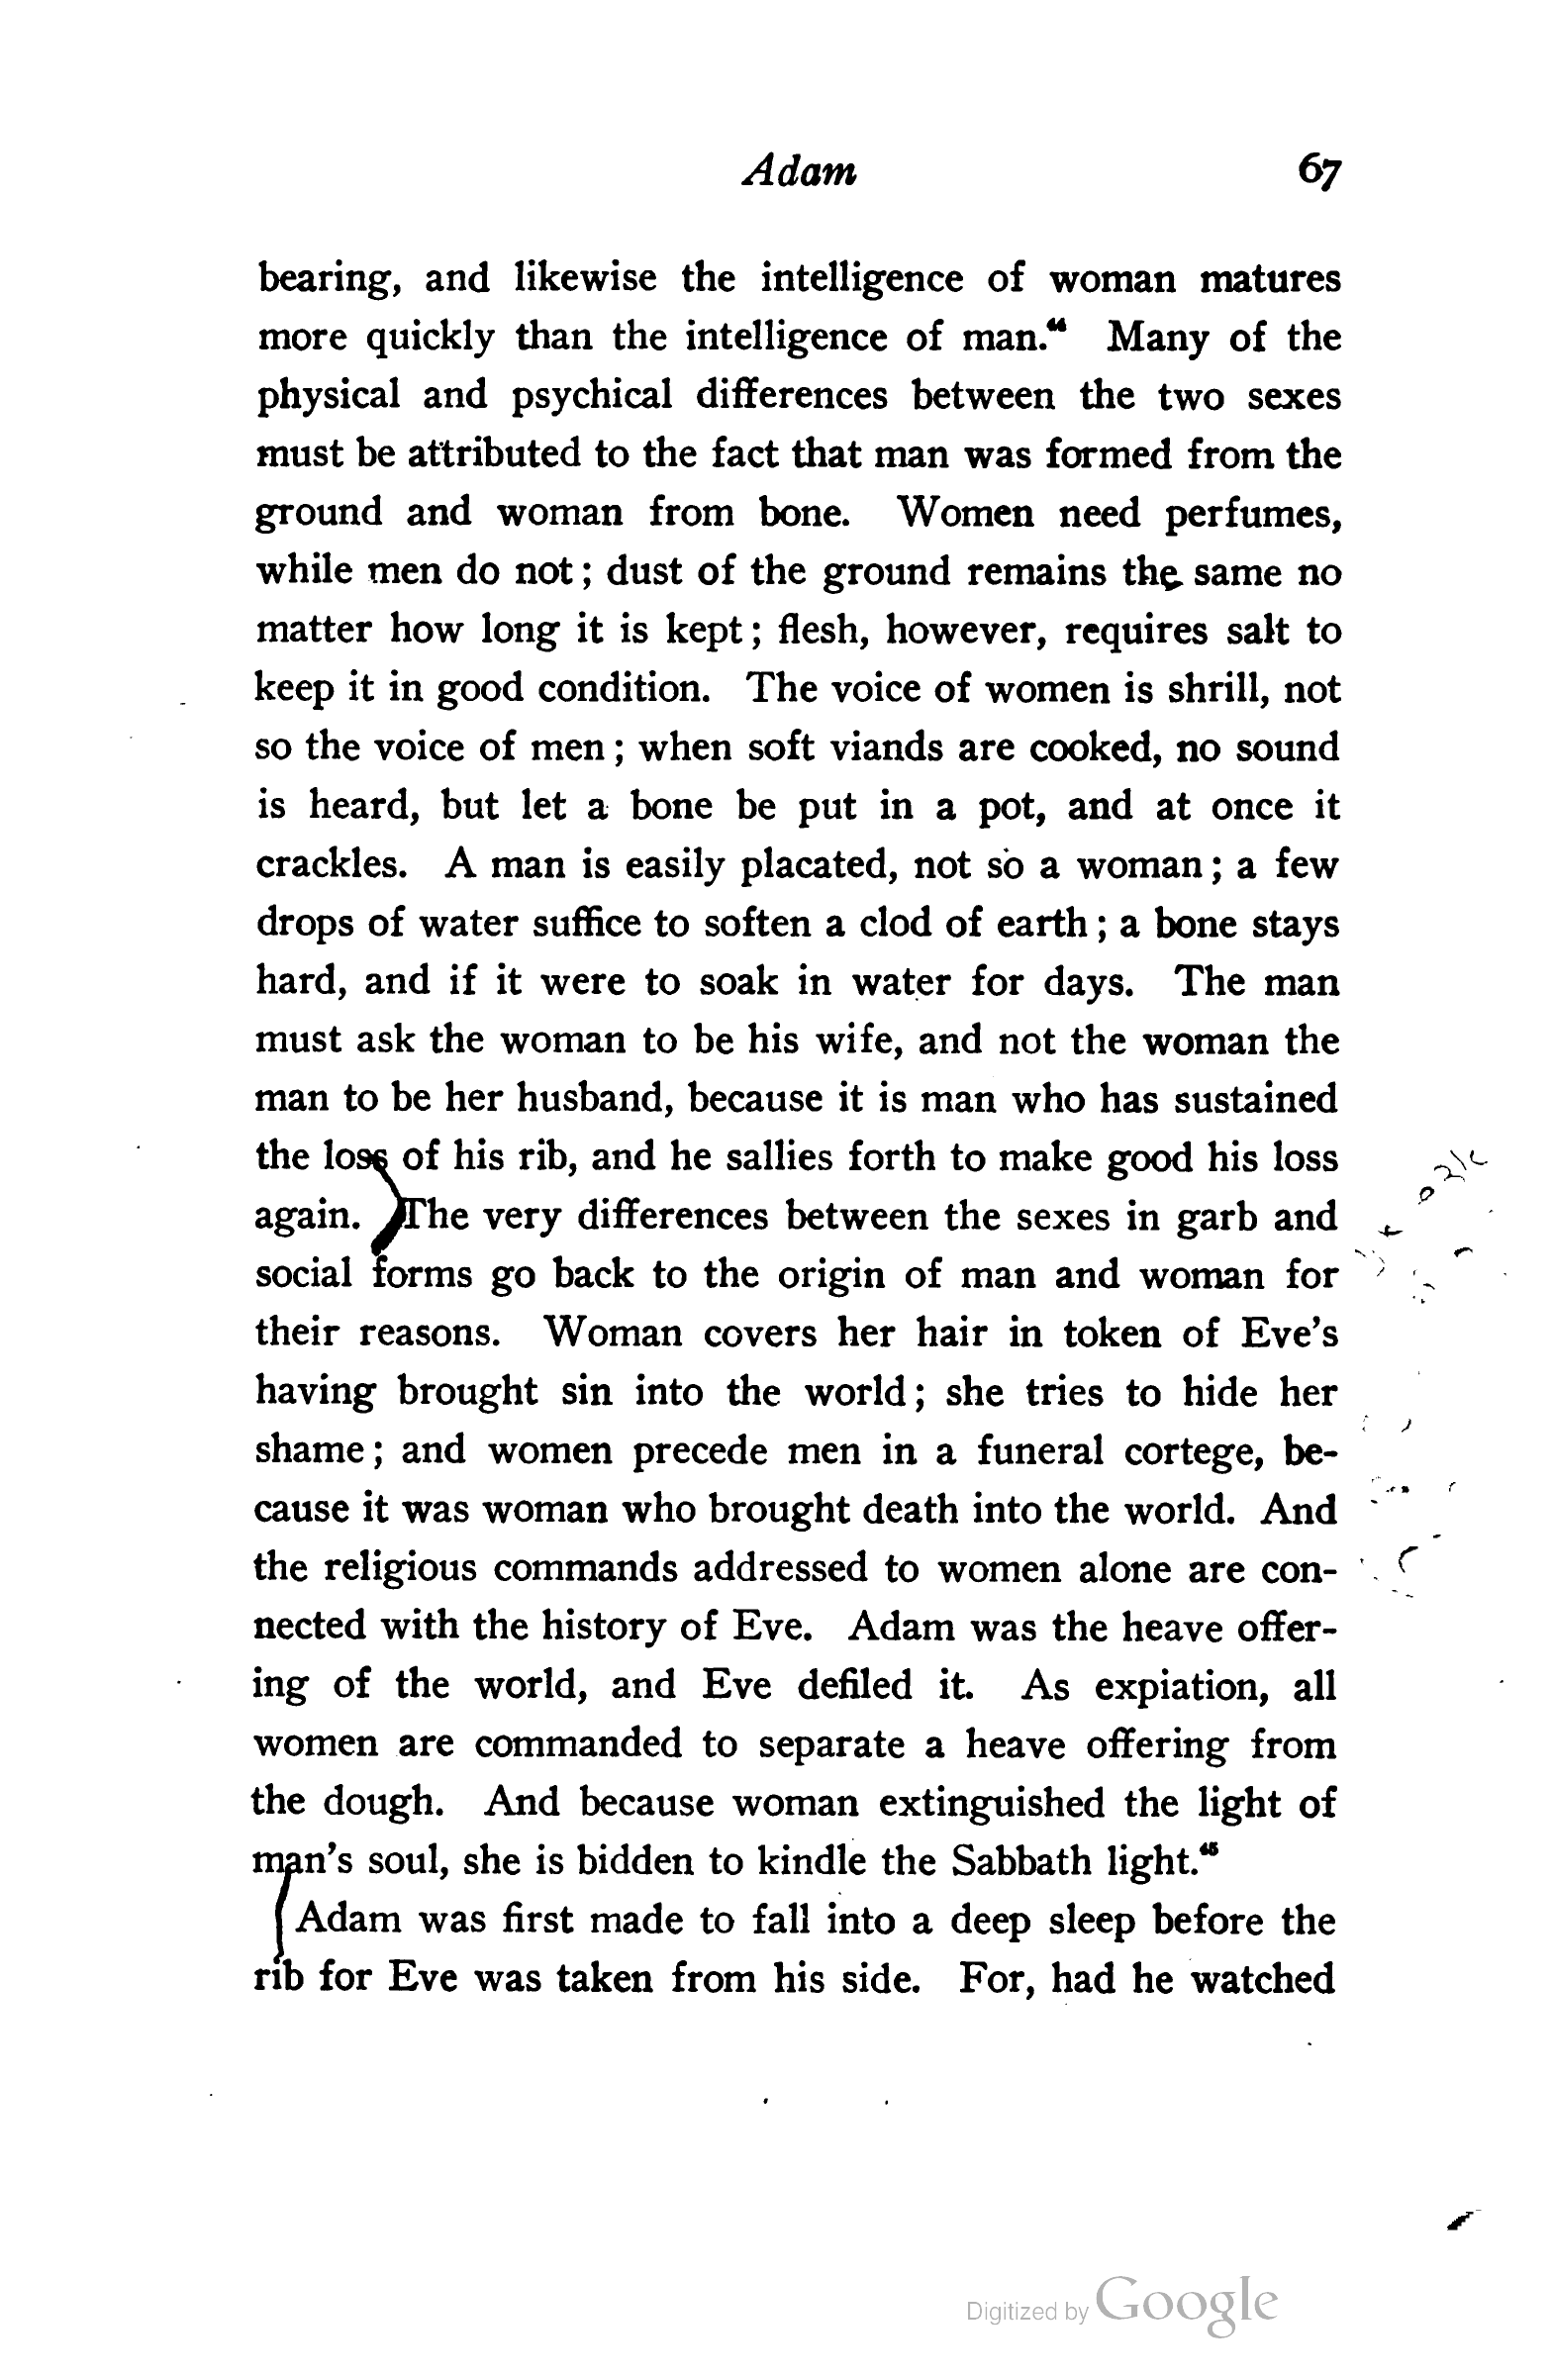 Adam 67
bearing, and likewise the intelligence of woman matures
more quickly than the intelligence of man.44 Many of the
physical and psychical differences between the two sexes
must be attributed to the fact that man was formed from the
ground and woman from bone. Women need perfumes,
while men do not; dust of the ground remains the same no
matter how long it is kept; flesh, however, requires salt to
keep it in good condition. The voice of women is shrill, not
so the voice of men; when soft viands are cooked, no sound
is heard, but let a bone be put in a pot, and at once it
crackles. A man is easily placated, not so a woman; a few
drops of water suffice to soften a clod of earth; a bone stays
hard, and if it were to soak in water for days. The man
must ask the woman to be his wife, and not the woman the
man to be her husband, because it is man who has sustained
the loss of his rib, and he sallies forth to make good his loss
again. The very differences between the sexes in garb and
social forms go back to the origin of man and woman for
their reasons. Woman covers her hair in token of Eve's
having brought sin into the world; she tries to hide her
shame; and women precede men in a funeral cortege, be-
cause it was woman who brought death into the world. And
the religious commands addressed to women alone are con-
nected with the history of Eve. Adam was the heave offer-
ing of the world, and Eve defiled it. As expiation, all
women are commanded to separate a heave offering from
the dough. And because woman extinguished the light of
man's soul, she is bidden to kindle the Sabbath light.45
Adam was first made to fall into a deep sleep before the
rib for Eve was taken from his side. For, had he watched
Digitized by Google